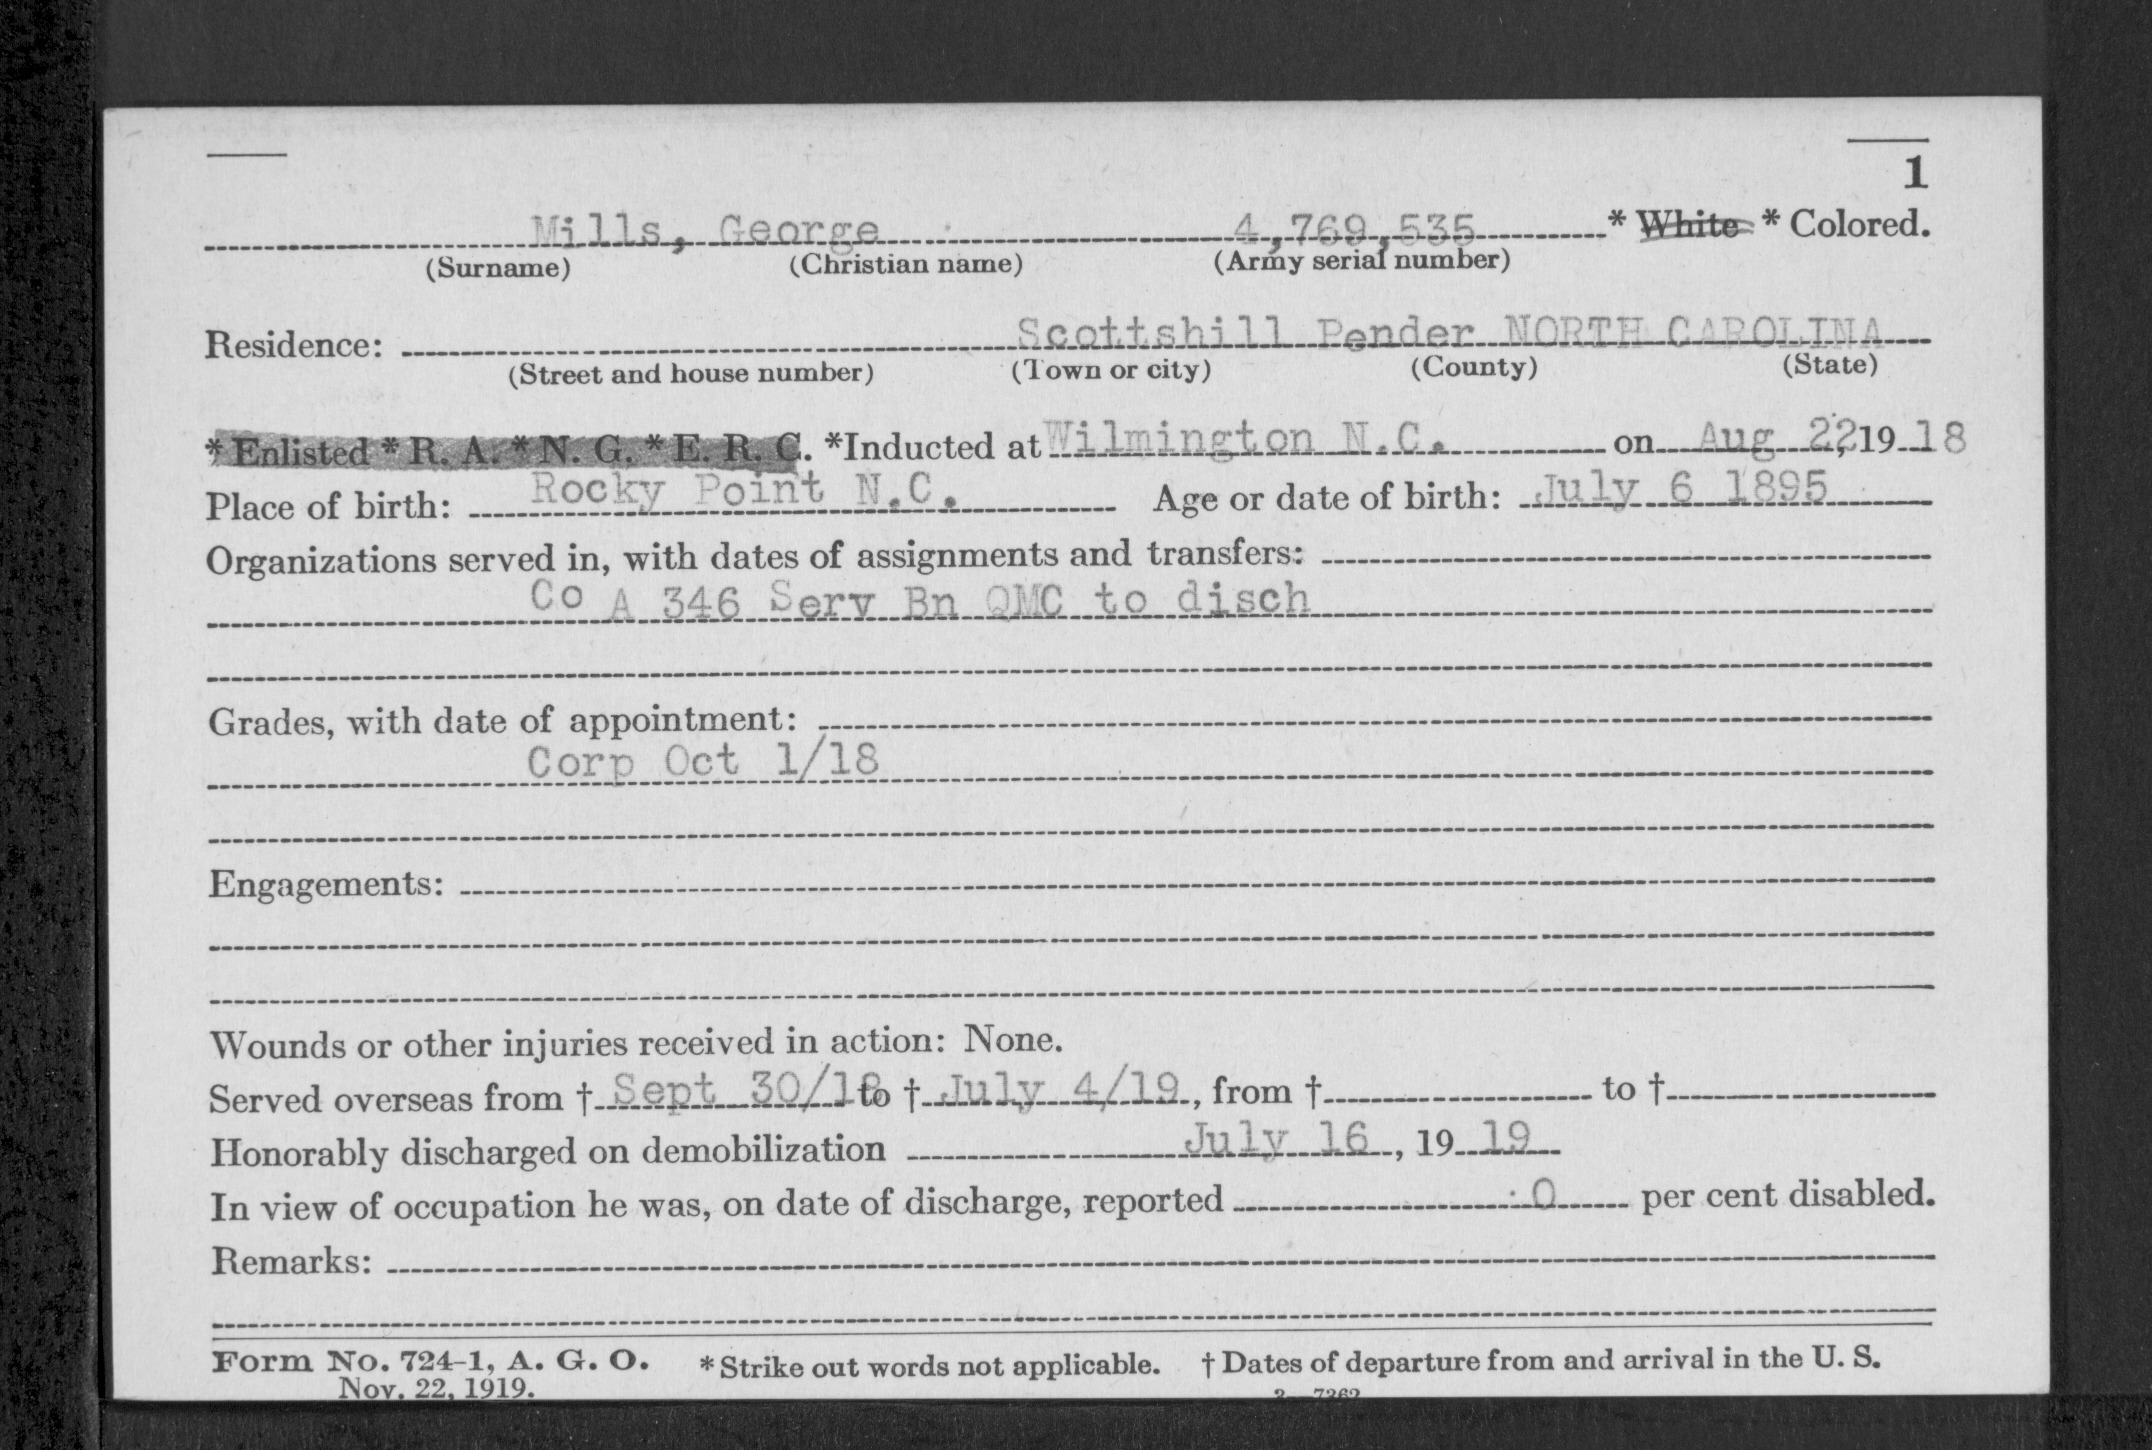 1
Mills, George 4,769,535 * White * Colored.
(Surname) (Christian name) (Army serial number)
Residence: Scottshill Pender NORTH CAROLINA
(Street and house number) (Town or city) (County) (State)
* Enlisted * R. A. * N. G. * E. R. C. *Inducted at Wilmington N.C. on Aug 22, 19 18
Place of birth: Rocky Point N.C. Age or date of birth: July 6 1895
Organizations served in, with dates of assignments and transfers:
Co A 346 Serv Bn QMC to disch
Grades, with date of appointment:
Corp Oct 1/18
Engagements:
Wounds or other injuries received in action: None.
Served overseas from † Sept 30/18 to † July 4/19, from † to †
Honorably discharged on demobilization July 16, 19 19
In view of occupation he was, on date of discharge, reported 0 per cent disabled.
Remarks:
Form No. 724-1, A. G. O. * Strike out words not applicable. † Dates of departure from and arrival in the U. S.
Nov. 22, 1919. 3—7362